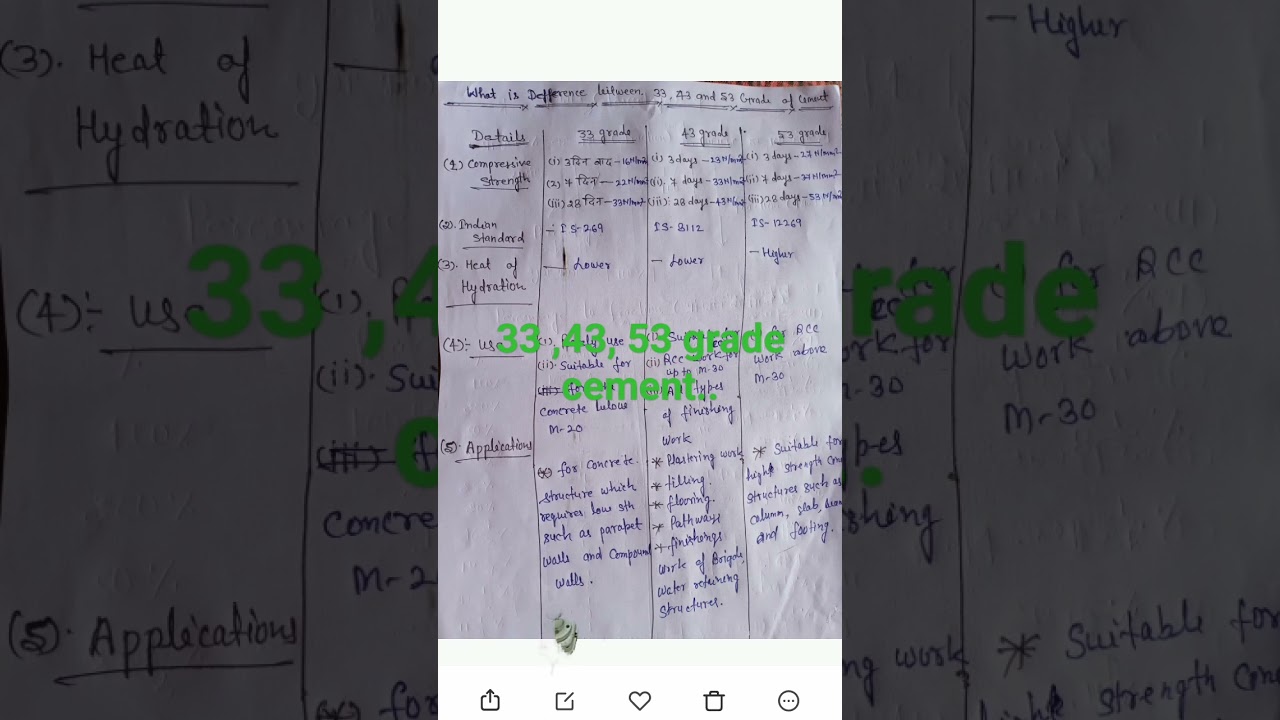 What is Defference between 33, 43 and 53 Grade of Cement
Details
33 grade
43 grade
53 grade
(1) Compressive
Strength
(i) 3 दिन बाद - 16 N/mm²
(2) 7 दिन - 22 N/mm²
(iii) 28 दिन - 33 N/mm²
(i) 3 days - 23 N/mm²
(ii). 7 days - 33 N/mm²
(iii): 28 days - 43 N/mm²
(i) 3 days - 27 N/mm²
(ii) 7 days - 37 N/mm²
(iii) 28 days - 53 N/mm²
(2). Indian
Standard
- IS-269
IS-8112
IS-12269
(3). Heat of
Hydration
- Lower
- Lower
- Higher
(4):- use
use
(ii). Suitable for
concrete
M-20
(ii) RCC work for
up to M-30
types
of finishing
work
for RCC
work above
M-30
33 ,43, 53 grade
cement..
(5). Applications
for concrete
structure which
requires low sth
such as parapet
walls and Compound
walls.
* Plastering work
* filling.
* flooring.
* Pathways
* finishongs
work of
water
structures.
* Suitable for
high strength
structures such as
column, slab,
and footing.
(3). Heat of
Hydration
(4):- use
(i).
(ii). Sui
concre
M-2
(5). Applications
for
- Higher
for RCC
work above
M-30
* Suitable for
strength